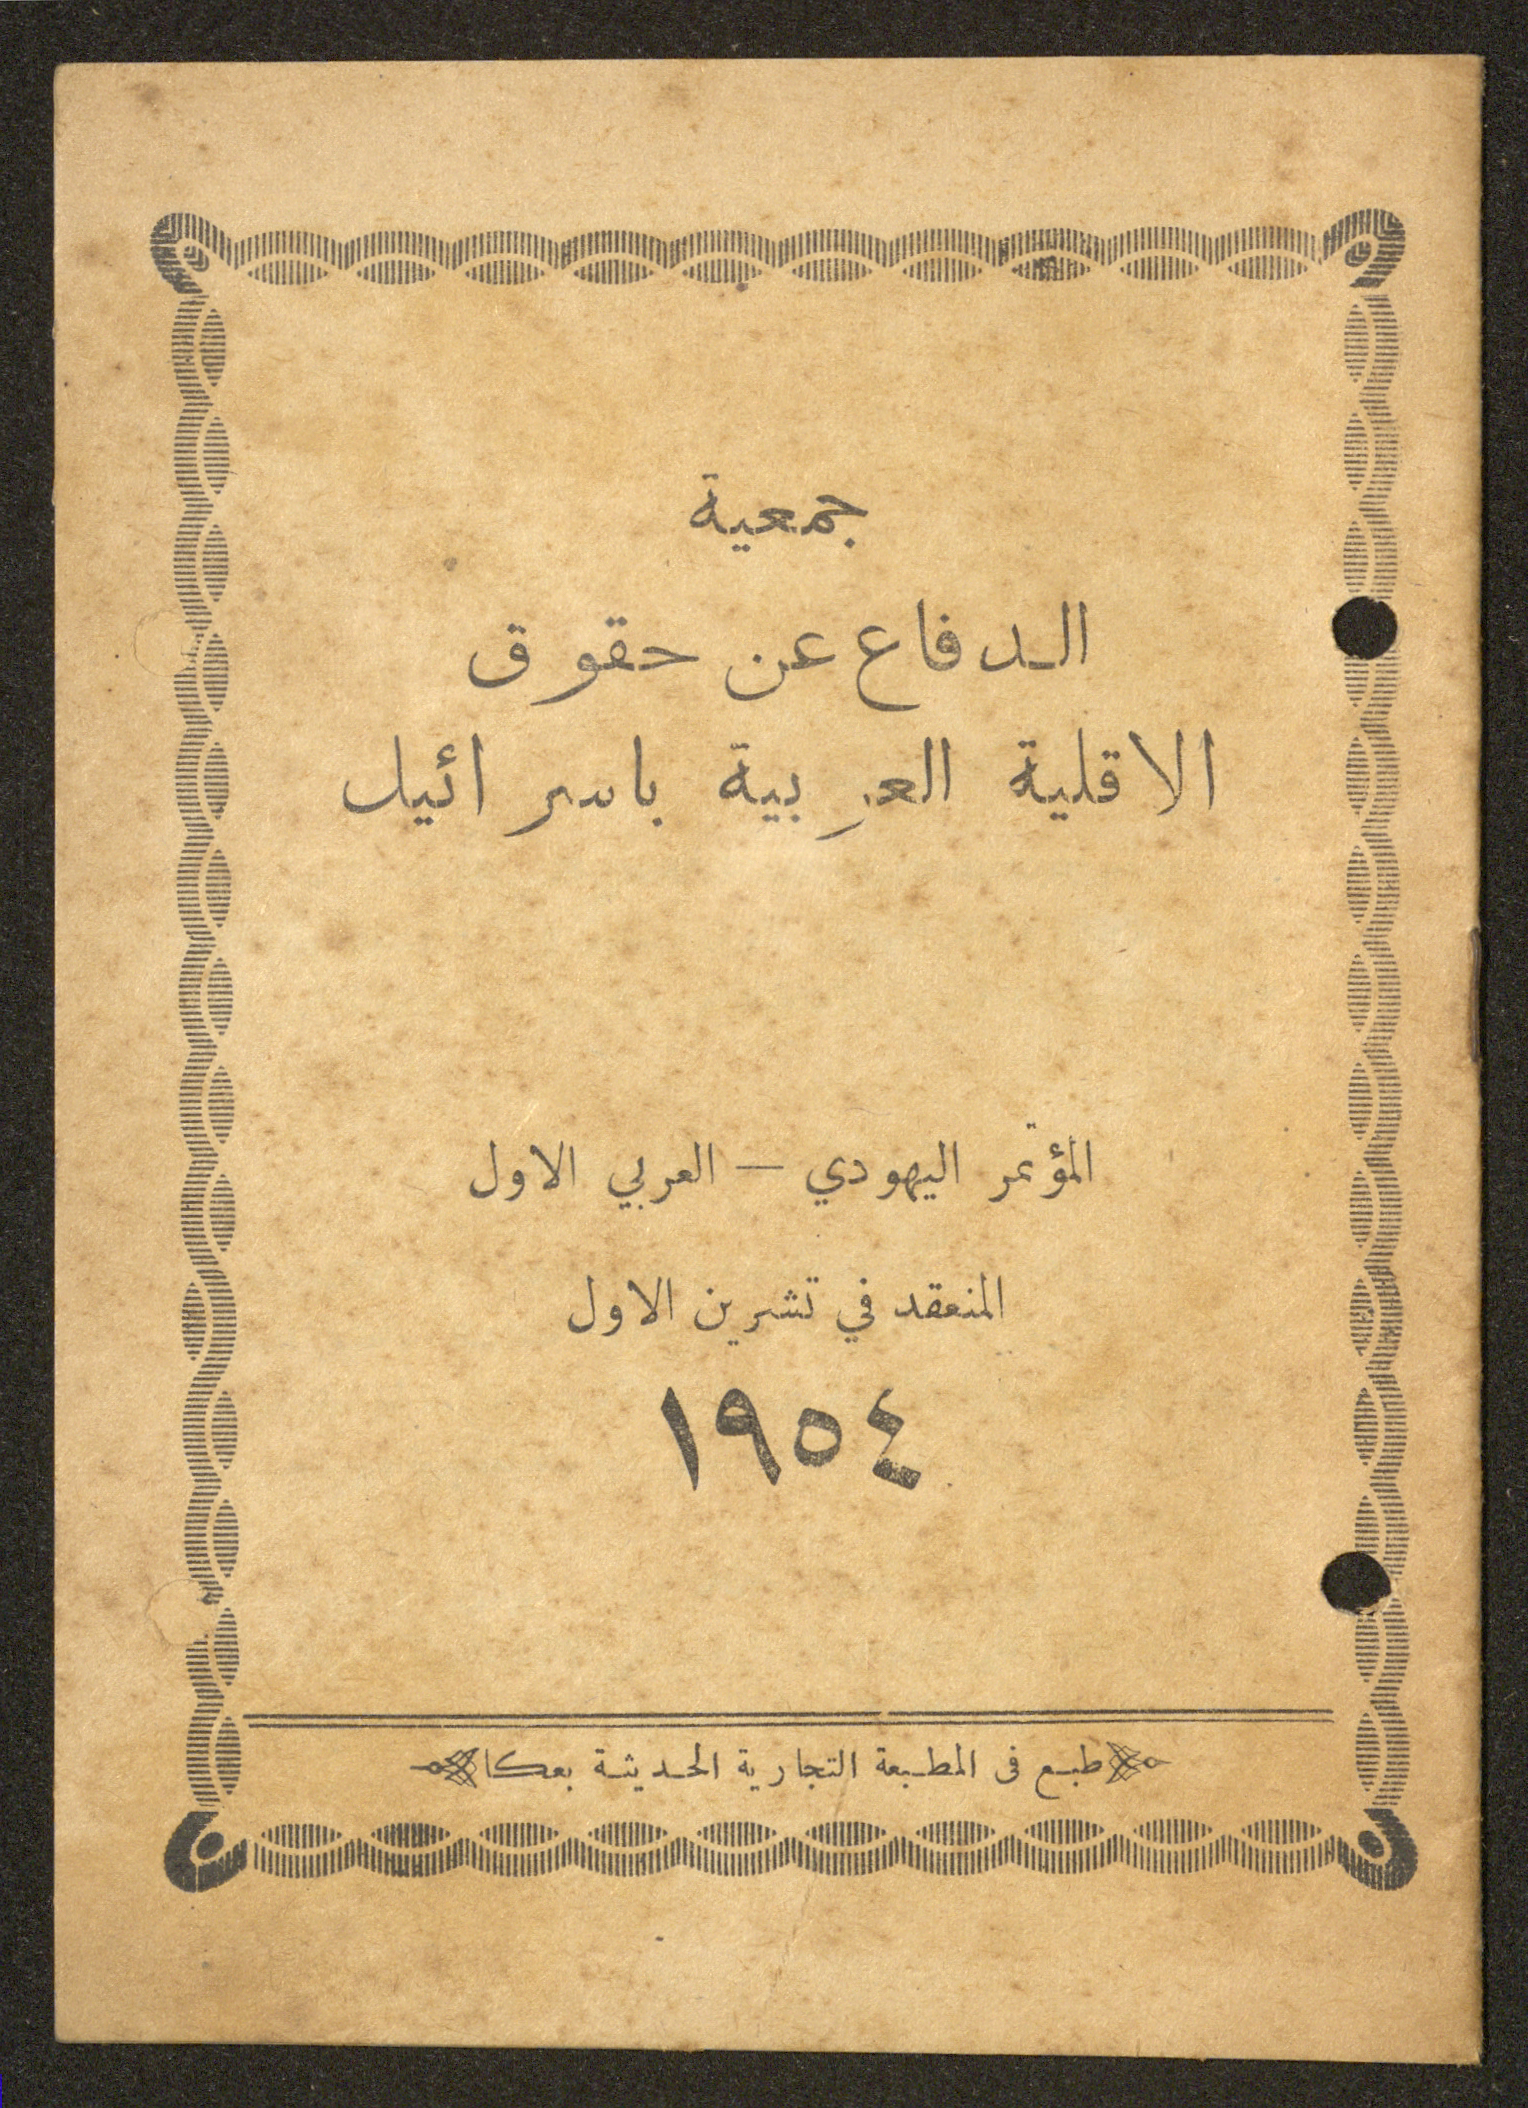 جمعية
الدفاع عن حقوق
الاقلية العربية باسرائيل
المؤتمر اليهودي — العربي الاول
المنعقد في تشرين الاول
١٩٥٤
طبع فى المطبعة التجارية الحديثة بعكا